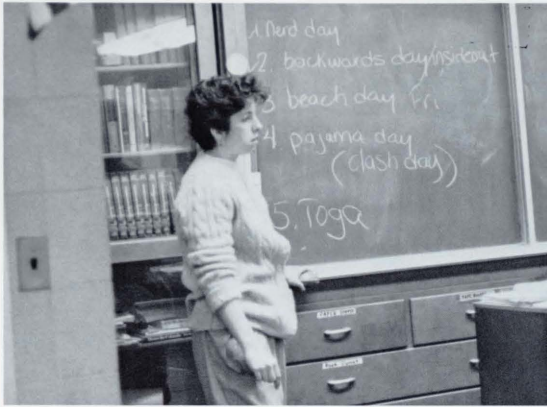 1. Nerd day
2. backwards day/insideout
3 beach day Fri
4 pajama day
(clash day)
5. Toga